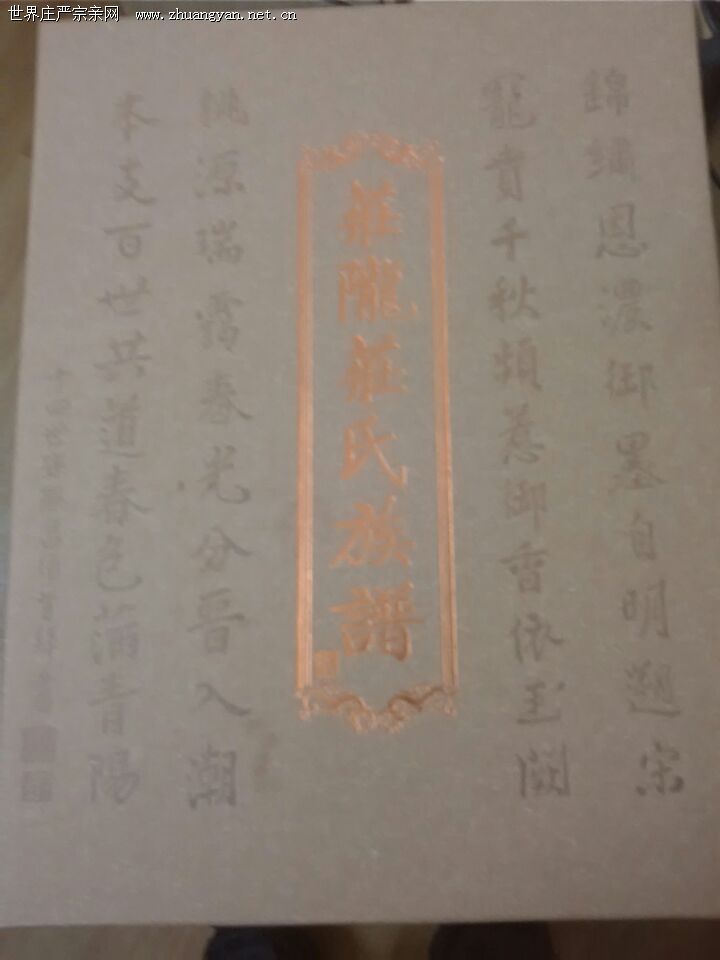 世界庄严宗亲网 www.zhuangyan.net.cn
錦繡恩濃御墨自明遡宋
寵貴千秋頻惹御香依玉闕
莊隴莊氏族譜
桃源瑞靄春光分晉入潮
本支百世共道春色滿青陽
十四世